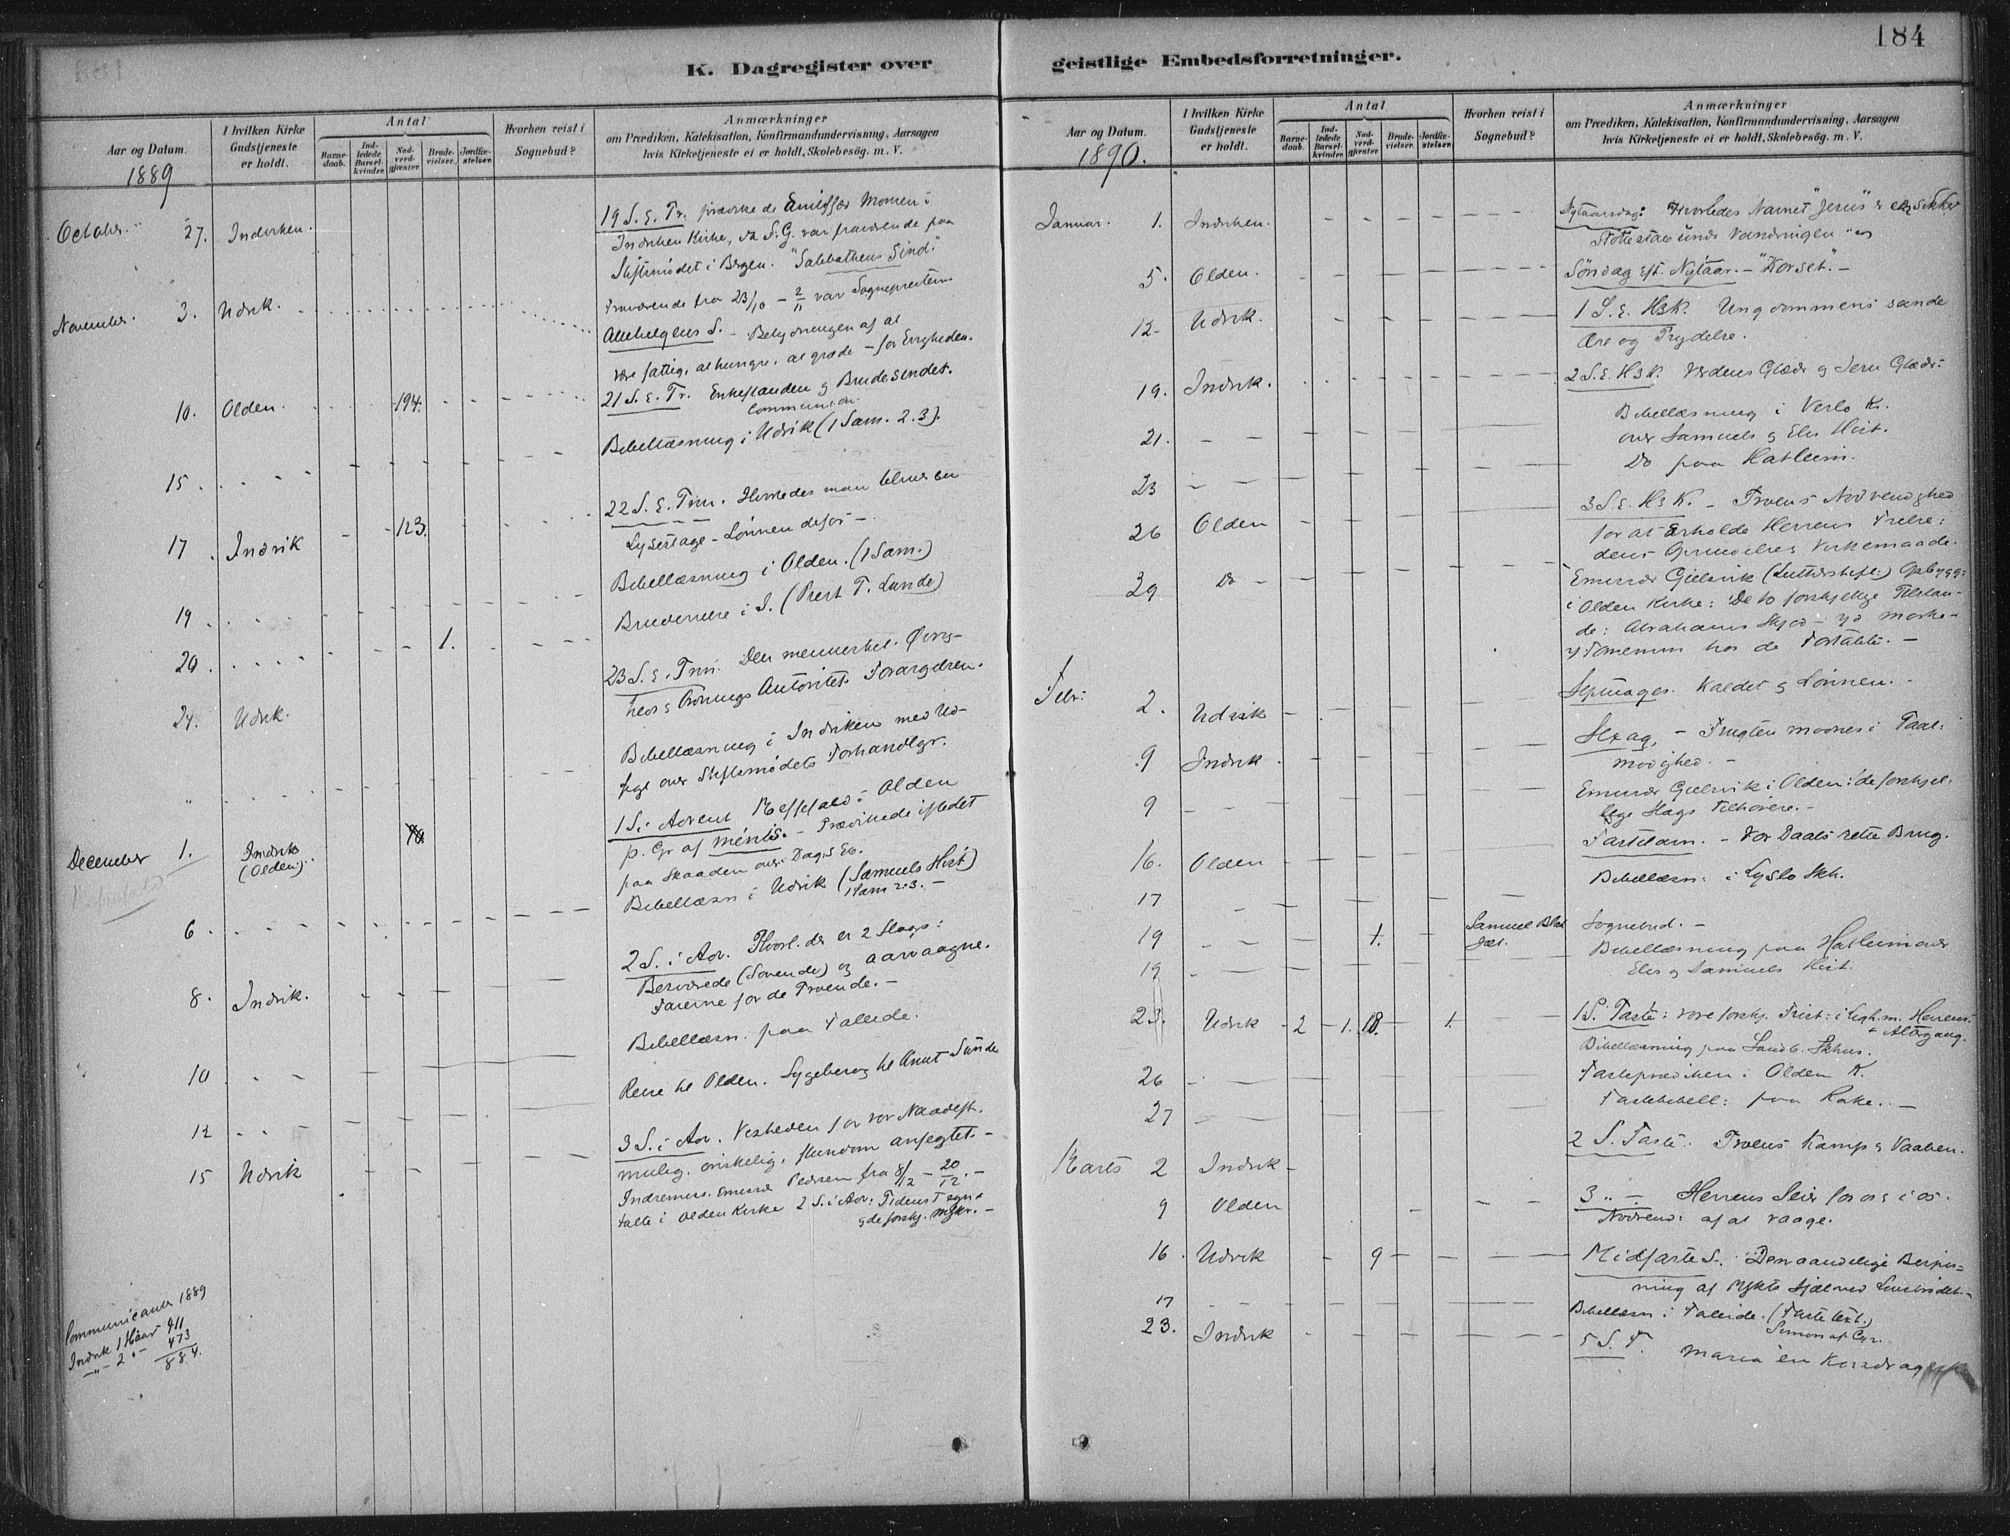 184
K. Dagregister over geistlige Embedsforretninger.
Aar og Datum.
1889
I hvilken Kirke Gudstjeneste er holdt.
Antal
Barne-daab.
Ind-ledede Barsel-kvinder.
Nad-verd-gjæster.
Brude-vielser.
Jordfæ-stelser.
Hvorhen reist i Sognebud?
Anmærkninger
om Prædiken, Katekisation, Konfirmandundervisning, Aarsagen
hvis Kirketjeneste ei er holdt, Skolebesøg. m. V.
October 27. Indviken. 19 S. E. Tr. prædikede Momen i
Indviken Kirke, da S. G. var fraværende paa
Stiftsmødet i Bergen. "Sabbathens Sind."
Fraværende fra 23/10 - 2/11 var Sognepresten.
November 3. Udvik. Allehelgens S. - Betydningen af at
være fattig, at hungre, at græde - for Evigheden.
10. Olden. 194. 21 S. E. Tr. Enkestanden og Brudesindet.
Communion.
15. Bibellæsning i Udvik (1 Sam. 2. 3).
17. Indvik 123. 22 S. E. Trin. Hvorledes man bliver en
Lysestage - Lønnen defor -.
19. Bibellæsning i Olden. (1 Sam.)
20. 1. Brudevielse i I. (Prest T. Lunde)
24. Udvik. 23 S. E. Trin. Den menneskel. Øvrig-
heds Autoritet. Forargelsen.
" Bibellæsning i Indviken med Ud-
sigt over Stiftsmødets Forhandlgr.
December 1. Indvik (Olden) 1 S. i Advent Messefald i Olden
p. Gr. af - Prædikede istedet
paa Skaaden over Dagens Ev.
6. Bibellæsn i Udvik (Samuels Hist)
1 Sam 2.3. -
8. Indvik. 2 S. i Adv. Hvorl. der er 2 Slags:
Besværede (Sovende) og aarvaagne.
Farerne for de Troende. -
10 Bibellæsn. paa Fallede.
12 Reise til Olden. Sygebesøg til Knut Sunde
15 Udvik 3 S. i Adv. Visheden for vor Naadest.
mulig, ønskelig, stundom anfegtet. -
Indremiss. emissær Pedersen fra 8/12 - 20/12. -
talte i Olden Kirke 2 S. i Adv: Tidens Tegn &
Communicanter 1889
Indvik 1 Haar 411
" - 2 " - 473
884.
Aar og Datum.
1890.
I hvilken Kirke Gudstjeneste er holdt.
Antal
Barne-daab.
Ind-ledede Barsel-kvinder.
Nad-verd-gjæster.
Brude-vielser.
Jordfæ-stelser.
Hvorhen reist i Sognebud?
Anmærkninger
om Prædiken, Katekisation, Konfirmandundervisning, Aarsagen
hvis Kirketjeneste ei er holdt, Skolebesøg. m. V.
Januar. 1. Indviken. Nytaarsdag: Hvorledes Navnet "Jesus" er en sikker
Støttestav under Vandringen
5. Olden. Søndag eft. Nytaar. - "Korset." -
12. Udvik. 1 S. E. H3K. Ungdommens sande
Ære og Prydelse.
19. Indvik. 2 S. E. H3K. Verdens Glæde og Jesu Glæde:
21. - - Bibellæsning i Verlo K.
over Samuels og Elis Hist.
23 - - Do paa Hatleim.
26 Olden 3 S. E. H3K. - Troens Nødvendighed
for at Erholde Herrens Frelse:
dens Oprindelse & Virkemaade.
29 Do - Emissær Gjelsvik (Lutherstift.) Opbygg:
i Olden Kirke: De to forskjellige Tilstan-
de: Abrahams Skjød -
hos de Fortabte. -
Febr. 2. Udvik Septuages. Kaldet og Lønnen. -
9 Indvik Sexag. - Frugten modnes i Taal:
modighed. -
9 - - Emissær Gjelsvik i Olden: de forskjel:
lige Slags Tilhørere. -
16. Olden Fastelavn. - Vor Daabs rette Brug.
17 - Bibellæsn: i Lyslo Skh.
19 - - 1. Samuel Sognebud. -
19 - Bibellæsning paa Hatleim over
Elis og Samuels Hist.
23. Udvik 2 1. 18. 1. 1 S. i Faste: vore forskj. Frist: i Ligh. m. Herrens.
+ Altergang.
Bibellæsning paa Sandb. Skhus.
26 - - Fasteprædiken i Olden K.
27 - Fastebibell: paa Rake. -
Marts 2 Indvik 2 S. Faste. Troens Kamp & Vaaben.
9 Olden 3 " - Herrens Seier for os & i os.
Nødvend: af at vaage.
16. Udvik 9 Midfaste S. Den aandelige Bespis-
ning af Sjæl ved Livsbrødet. -
17 - - Bibellæsn i Fallede. (Fastetext.)
Simon af Cyr.
23. Indvik 5 S. F. Maria en Korsdrager